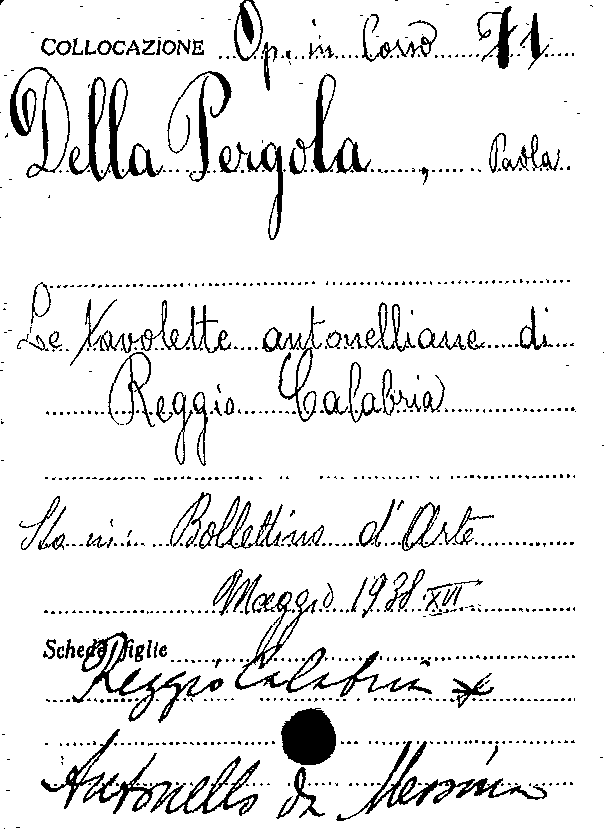 COLLOCAZIONE Op. in Corso 71
Della Pergola, Paola
Le tavolette antonelliane di
Reggio Calabria
Sta in: Bollettino d'Arte
Maggio 1938 XVI
Schede figlie
Reggio Calabria *
Antonello da Messina